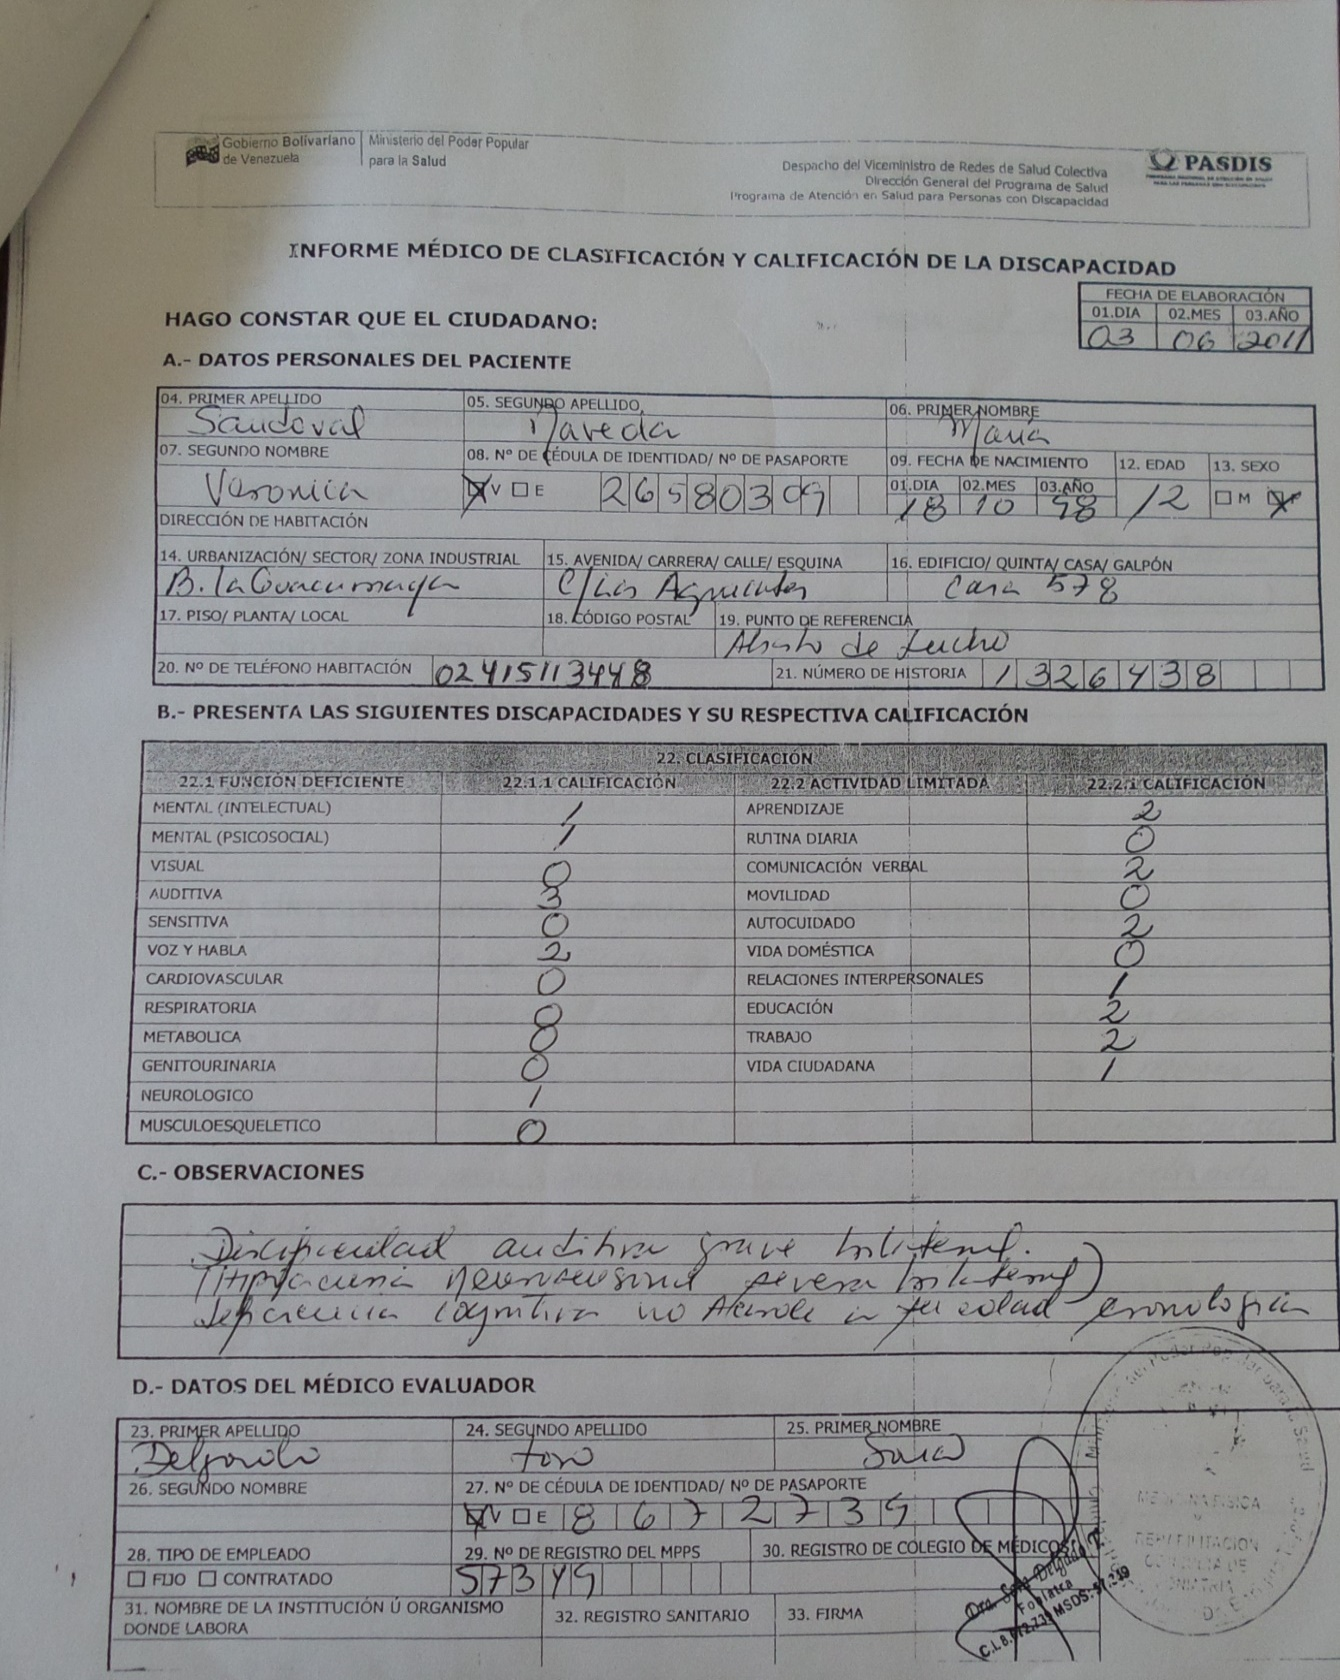 Gobierno Bolivariano de Venezuela
Ministerio del Poder Popular para la Salud
Despacho del Viceministro de Redes de Salud Colectiva
Dirección General del Programa de Salud
Programa de Atención en Salud para Personas con Discapacidad
PASDIS
INFORME MÉDICO DE CLASIFICACIÓN Y CALIFICACIÓN DE LA DISCAPACIDAD
FECHA DE ELABORACIÓN
01.DIA 02.MES 03.AÑO
03 06 2011
HAGO CONSTAR QUE EL CIUDADANO:
A.- DATOS PERSONALES DEL PACIENTE
04. PRIMER APELLIDO 05. SEGUNDO APELLIDO 06. PRIMER NOMBRE
Sandoval Maveda María
07. SEGUNDO NOMBRE 08. Nº DE CÉDULA DE IDENTIDAD/ Nº DE PASAPORTE 09. FECHA DE NACIMIENTO 12. EDAD 13. SEXO
01.DIA 02.MES 03.AÑO
Veronica V E 26580309 18 10 98 12 M
DIRECCIÓN DE HABITACIÓN
14. URBANIZACIÓN/ SECTOR/ ZONA INDUSTRIAL 15. AVENIDA/ CARRERA/ CALLE/ ESQUINA 16. EDIFICIO/ QUINTA/ CASA/ GALPÓN
B. la Guacamaya C/Los Casa 578
17. PISO/ PLANTA/ LOCAL 18. CÓDIGO POSTAL 19. PUNTO DE REFERENCIA
Abasto de Lucho
20. Nº DE TELÉFONO HABITACIÓN 02415113448 21. NÚMERO DE HISTORIA 1326438
B.- PRESENTA LAS SIGUIENTES DISCAPACIDADES Y SU RESPECTIVA CALIFICACIÓN
22. CLASIFICACIÓN
22.1 FUNCIÓN DEFICIENTE 22.1.1 CALIFICACIÓN 22.2 ACTIVIDAD LIMITADA 22.2.1 CALIFICACIÓN
MENTAL (INTELECTUAL) 1 APRENDIZAJE 2
MENTAL (PSICOSOCIAL) 1 RUTINA DIARIA 0
VISUAL 0 COMUNICACIÓN VERBAL 2
AUDITIVA 3 MOVILIDAD 0
SENSITIVA 0 AUTOCUIDADO 2
VOZ Y HABLA 2 VIDA DOMÉSTICA 0
CARDIOVASCULAR 0 RELACIONES INTERPERSONALES 1
RESPIRATORIA 0 EDUCACIÓN 2
METABOLICA 0 TRABAJO 2
GENITOURINARIA 0 VIDA CIUDADANA 1
NEUROLOGICO 1
MUSCULOESQUELETICO 0
C.- OBSERVACIONES
Discapacidad auditiva grave bilateral.
(Hipoacusia neurosensorial severa bilateral)
deficiencia cognitiva no Acorde a su edad cronologica
D.- DATOS DEL MÉDICO EVALUADOR
23. PRIMER APELLIDO 24. SEGUNDO APELLIDO 25. PRIMER NOMBRE
Delgado Toro Sara
26. SEGUNDO NOMBRE 27. Nº DE CÉDULA DE IDENTIDAD/ Nº DE PASAPORTE
V E 8672739
28. TIPO DE EMPLEADO 29. Nº DE REGISTRO DEL MPPS 30. REGISTRO DE COLEGIO DE MÉDICOS
FIJO CONTRATADO 57349
31. NOMBRE DE LA INSTITUCIÓN Ú ORGANISMO DONDE LABORA 32. REGISTRO SANITARIO 33. FIRMA
Dra. Sara Delgado T.
Foniatra
C.I. 8.672.739 MSDS:
MEDICINA FISICA
REHABILITACION